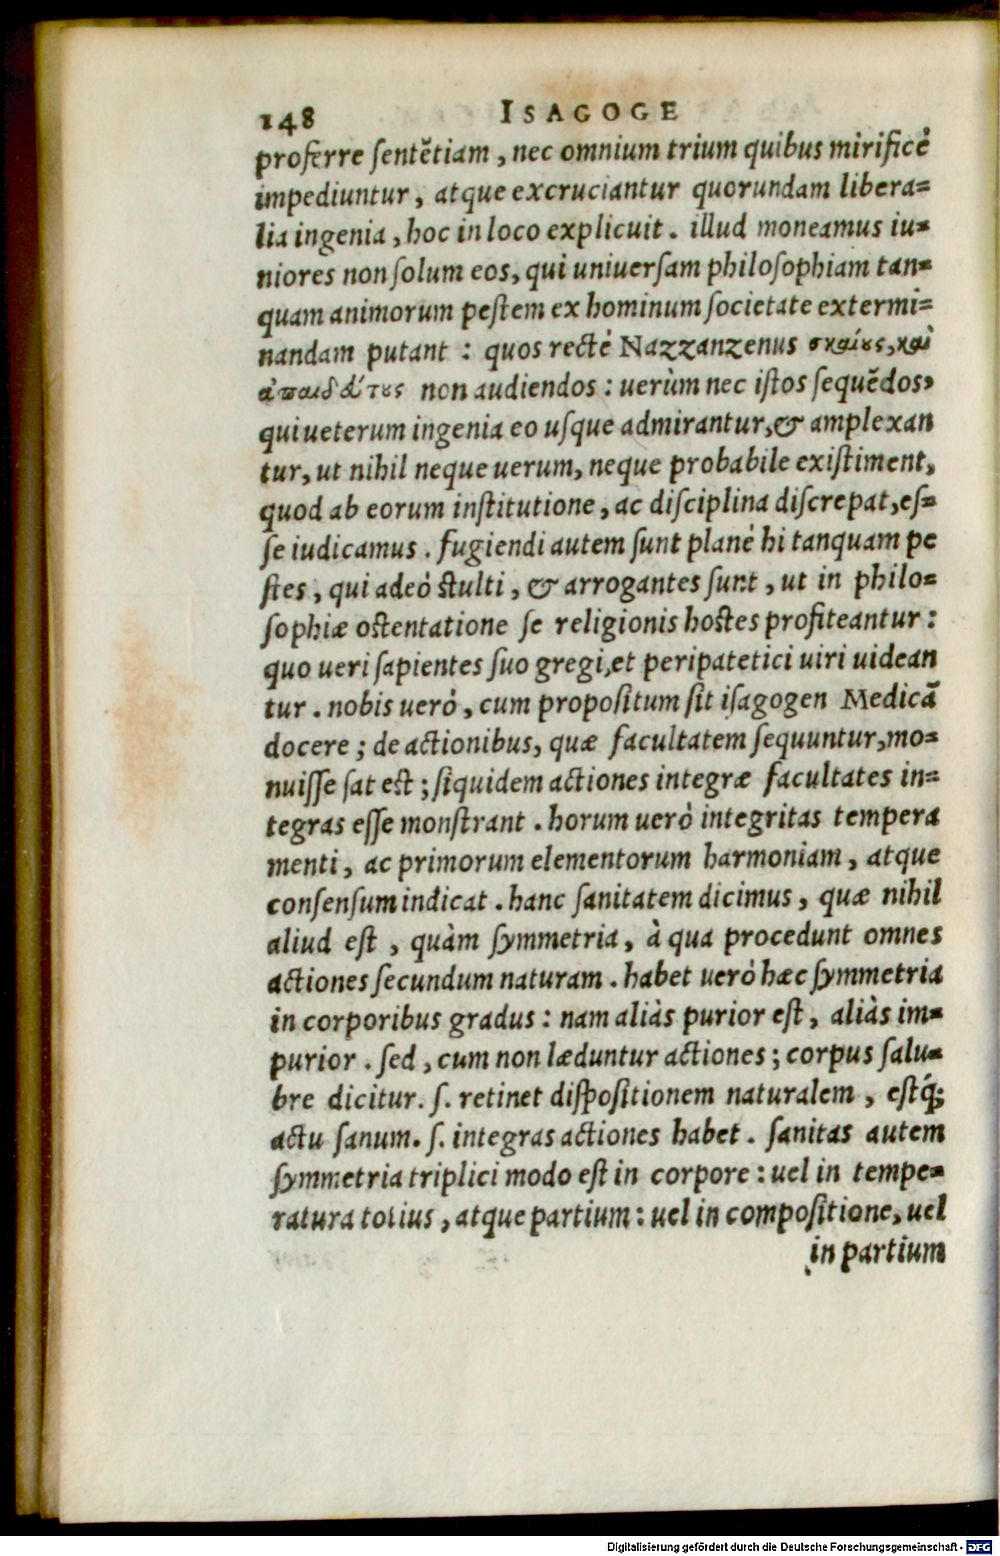 148 ISAGOGE
proferre sentētiam, nec omnium trium quibus mirificè
impediuntur, atque excruciantur quorundam libera=
lia ingenia, hoc in loco explicuit. illud moneamus iu=
niores non solum eos, qui uniuersam philosophiam tan=
quam animorum pestem ex hominum societate extermi=
nandam putant : quos rectè Nazzanzenus σκαίους, καὶ
ἀπαιδεύτους non audiendos : uerùm nec istos sequēdos,
qui ueterum ingenia eo usque admirantur, & amplexan
tur, ut nihil neque uerum, neque probabile existiment,
quod ab eorum institutione, ac disciplina discrepat, es=
se iudicamus. fugiendi autem sunt planè hi tanquam pe
stes, qui adeò stulti, & arrogantes sunt, ut in philo=
sophiæ ostentatione se religionis hostes profiteantur :
quo ueri sapientes suo gregi, et peripatetici uiri uidean
tur. nobis uerò, cum propositum sit isagogen Medicā
docere ; de actionibus, quæ facultatem sequuntur, mo=
nuisse sat est ; siquidem actiones integræ facultates in=
tegras esse monstrant. horum uerò integritas tempera
menti, ac primorum elementorum harmoniam, atque
consensum indicat. hanc sanitatem dicimus, quæ nihil
aliud est, quàm symmetria, à qua procedunt omnes
actiones secundum naturam. habet uerò hæc symmetria
in corporibus gradus : nam aliàs purior est, aliàs im=
purior. sed, cum non læduntur actiones ; corpus salu=
bre dicitur. s. retinet dispositionem naturalem, estq́;
actu sanum. s. integras actiones habet. sanitas autem
symmetria triplici modo est in corpore : uel in tempe=
ratura totius, atque partium : uel in compositione, uel
in partium
Digitalisierung gefördert durch die Deutsche Forschungsgemeinschaft - DFG